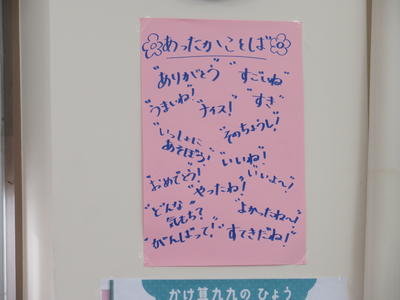 あったかことば
"ありがとう" "すごいね"
"うまいね!" "ナイス!" "すき"
"いっしょに
あそぼう!" "そのちょうし!"
"いいね!"
"おめでとう!" "やったね!" "いいよ〜!"
"どんな
気もち?" "よかったね〜!"
"がんばって!" "すてきだね!"
かけ算九九の ひょう